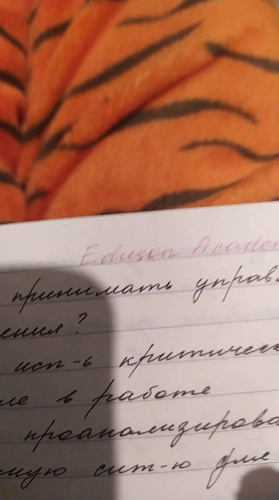 Eduson Acade
принимать управ.
ения?
исп-ь критическ
ие в работе
проанализирова
мую сит-ю для